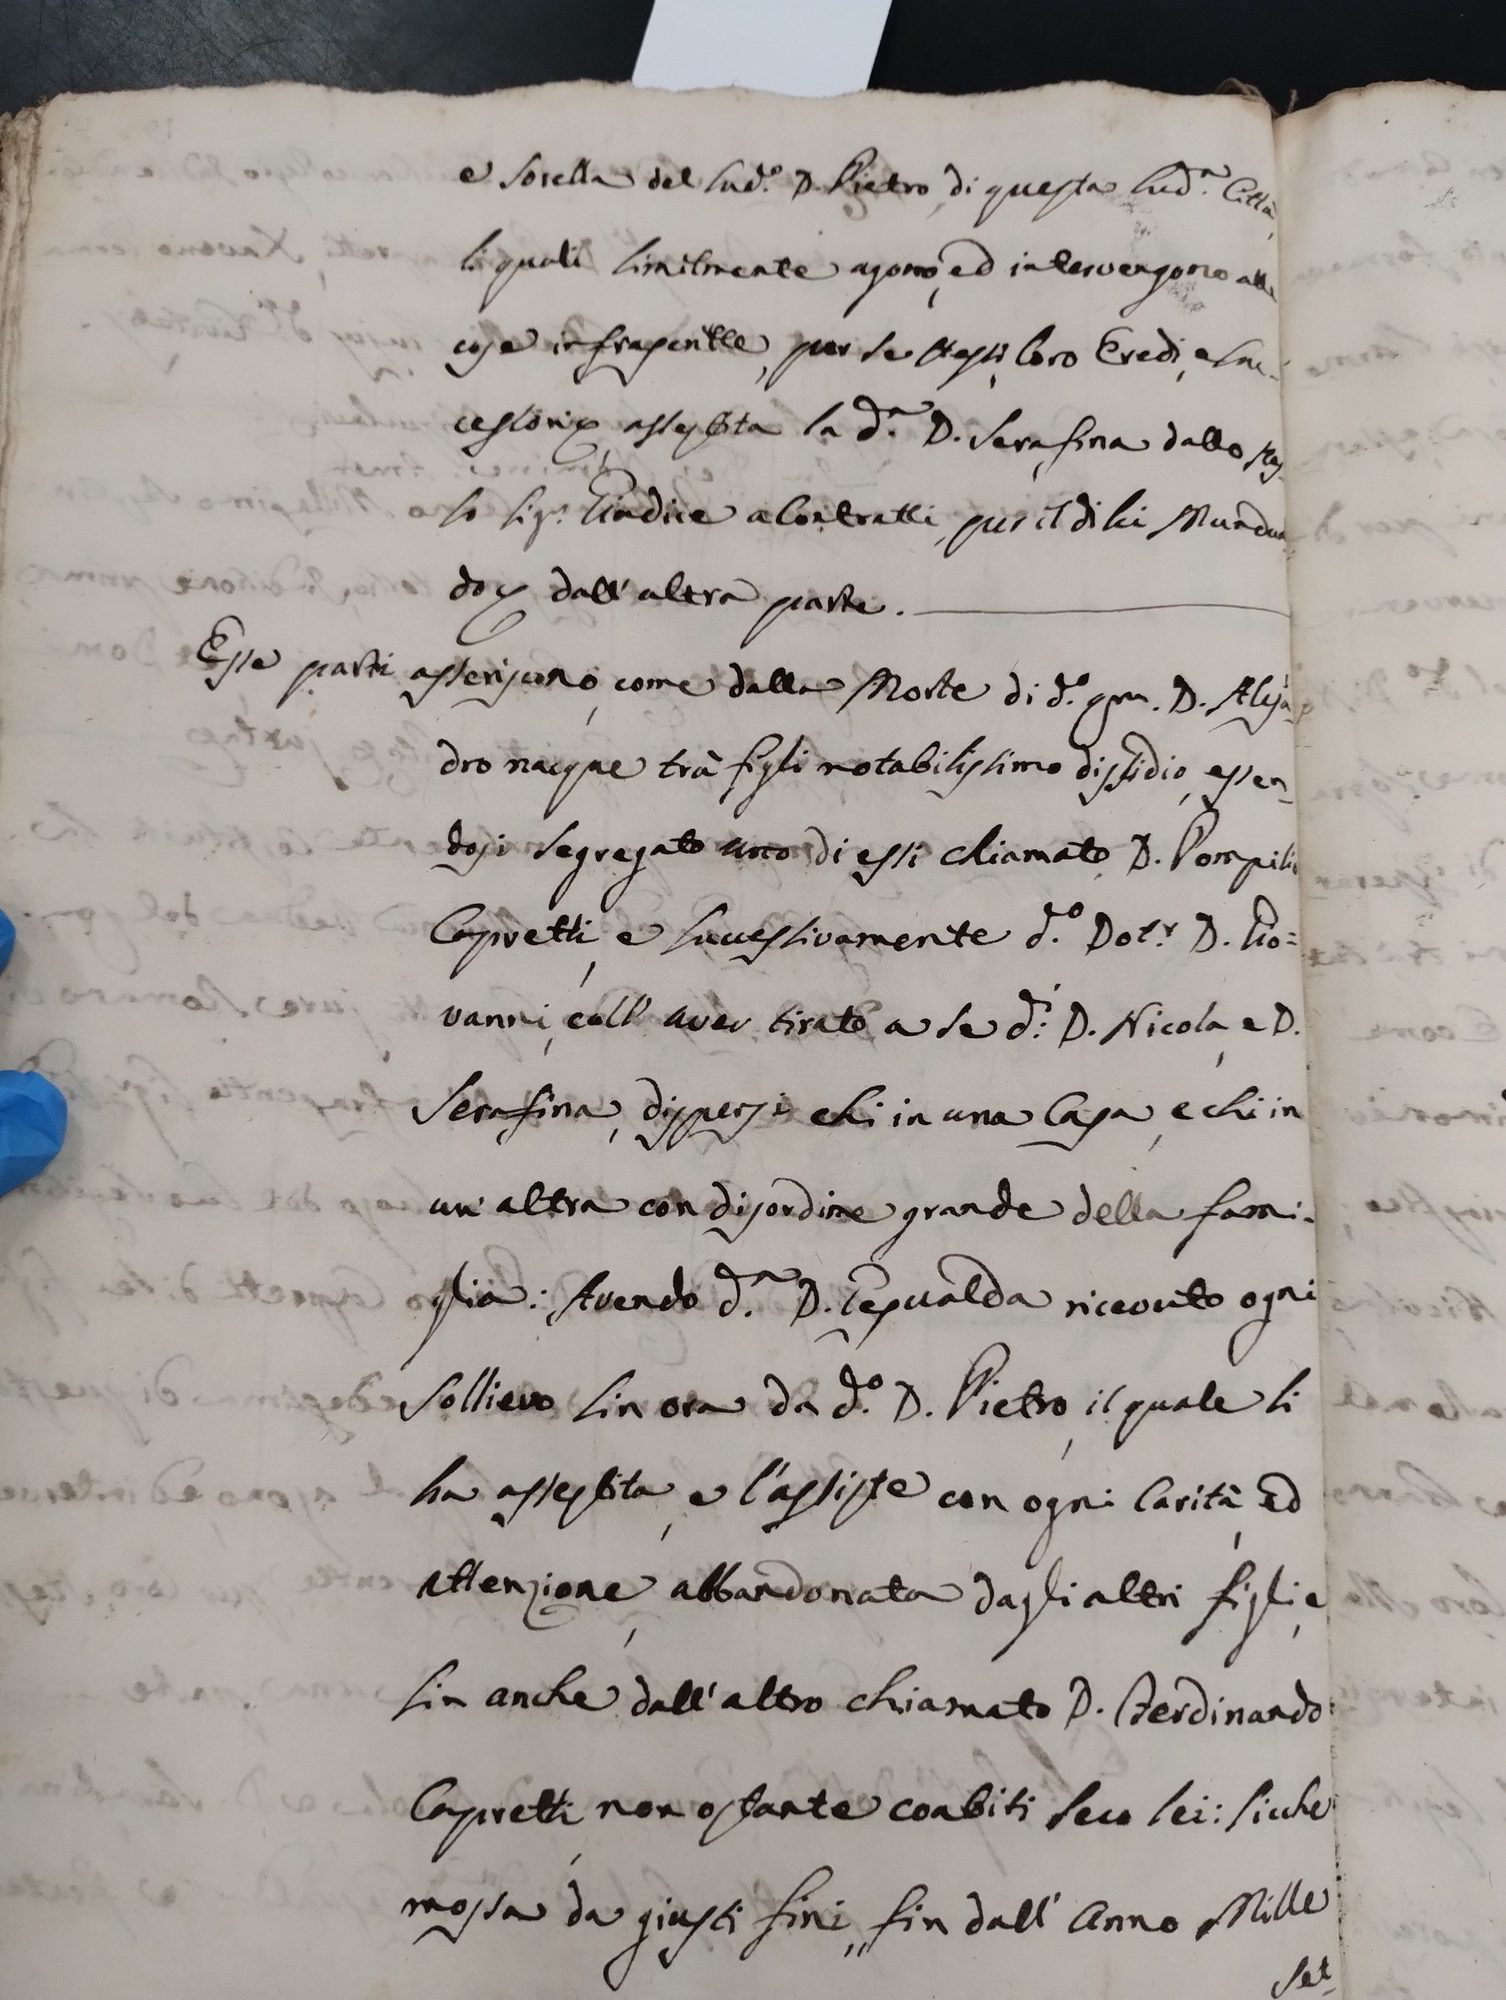 e Sorella del sud.º D. Pietro, di questa sud.ª Città,
li quali similmente agono, ed intervengono alle
cose infrascritte, per se stessi, loro Eredi, e Suc-
cessori, assistita la d.ª D. Serafina dallo stes-
so Sig.r Giudice a Contratti, per il di lei Mundual-
do, dall'altra parte.
Esse parti asseriscono, come dalla Morte di d.º qm. D. Alesan-
dro nacque trà figli notabilissimo dissidio, essen-
dosi segregato uno di essi chiamato D. Pompilio
Capretti, e successivamente d.º Dot.r D. Gio=
vanni, coll'aver tirato a se d.i D. Nicola, e D.
Serafina, dispersi chi in una Casa, e chi in
un'altra con disordine grande della fami-
glia: Avendo d.ª D. Gesualda ricevuto ogni
sollievo sin ora da d.º D. Pietro, il quale li
ha assistita, e l'assiste con ogni Carità, ed
attenzione, abbandonata dagli altri figli, e
sin anche dall'altro chiamato D. Ferdinando
Capretti, non ostante coabiti seco lei: Sicche
mossa da giusti fini, fin dall'Anno Mille
Set-